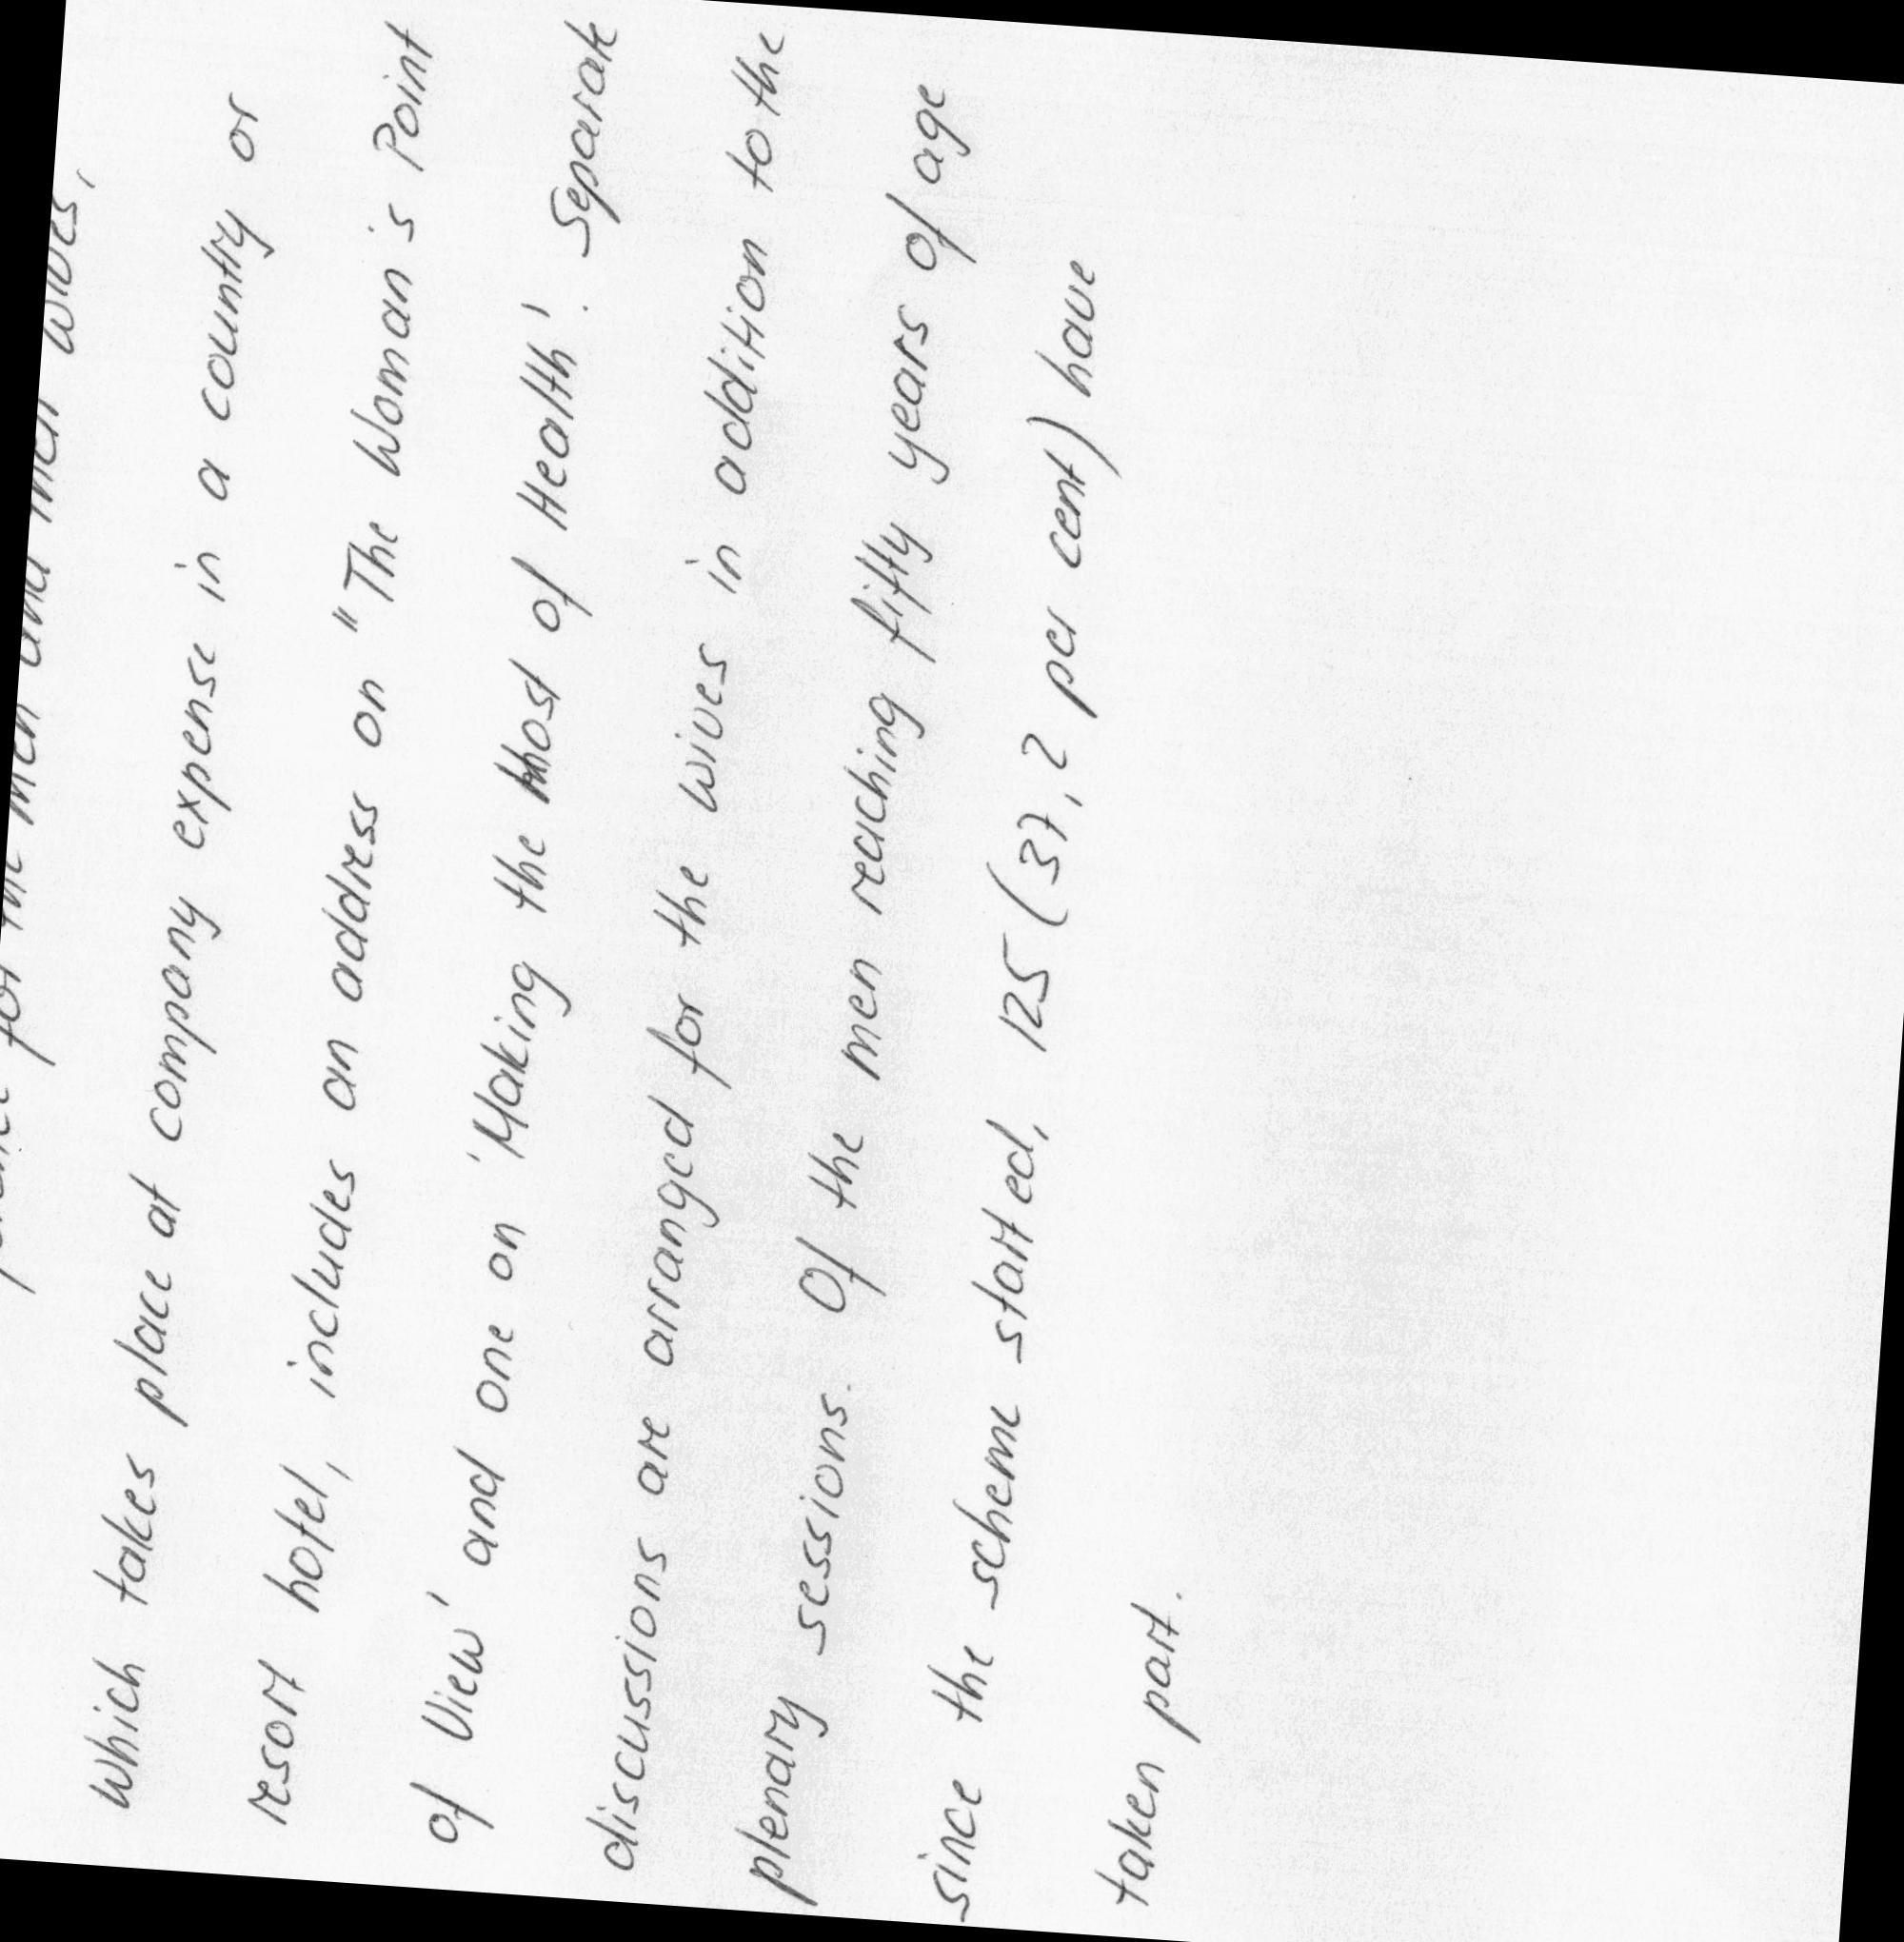 for the men and their wives,
which takes place at company expense in a country or
resort hotel, includes an address on "The Woman's Point
of View' and one on 'Making the most of Health'. Separate
discussions are arranged for the wives in addition to the
plenary sessions. Of the men reaching fifty years of age
since the scheme started, 125 (37,2 per cent) have
taken part.